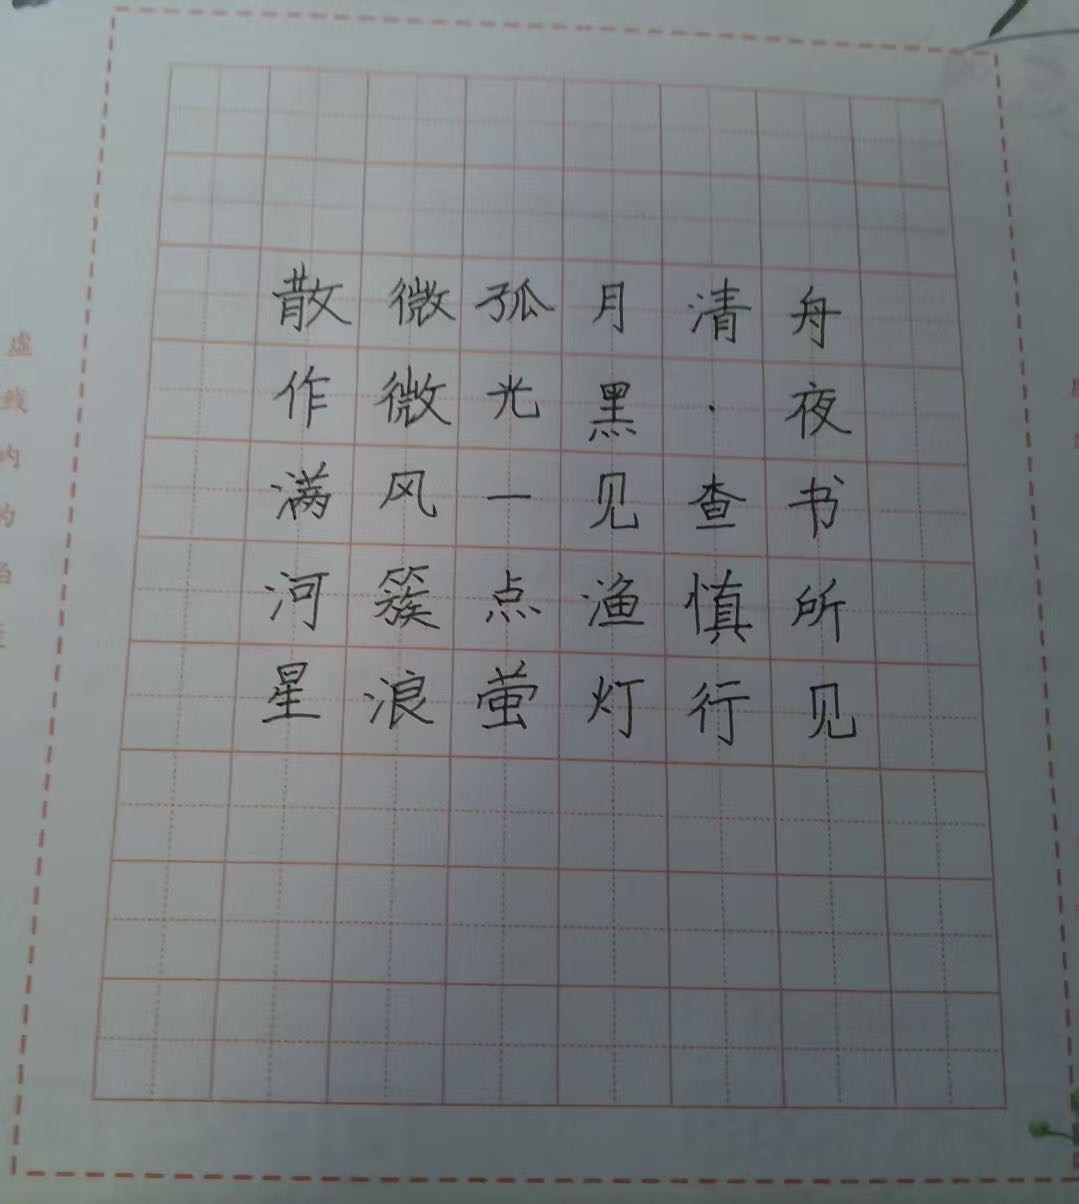 舟夜书所见
清·查慎行
月黑见渔灯
孤光一点萤
微微风簇浪
散作满河星
虚线内的